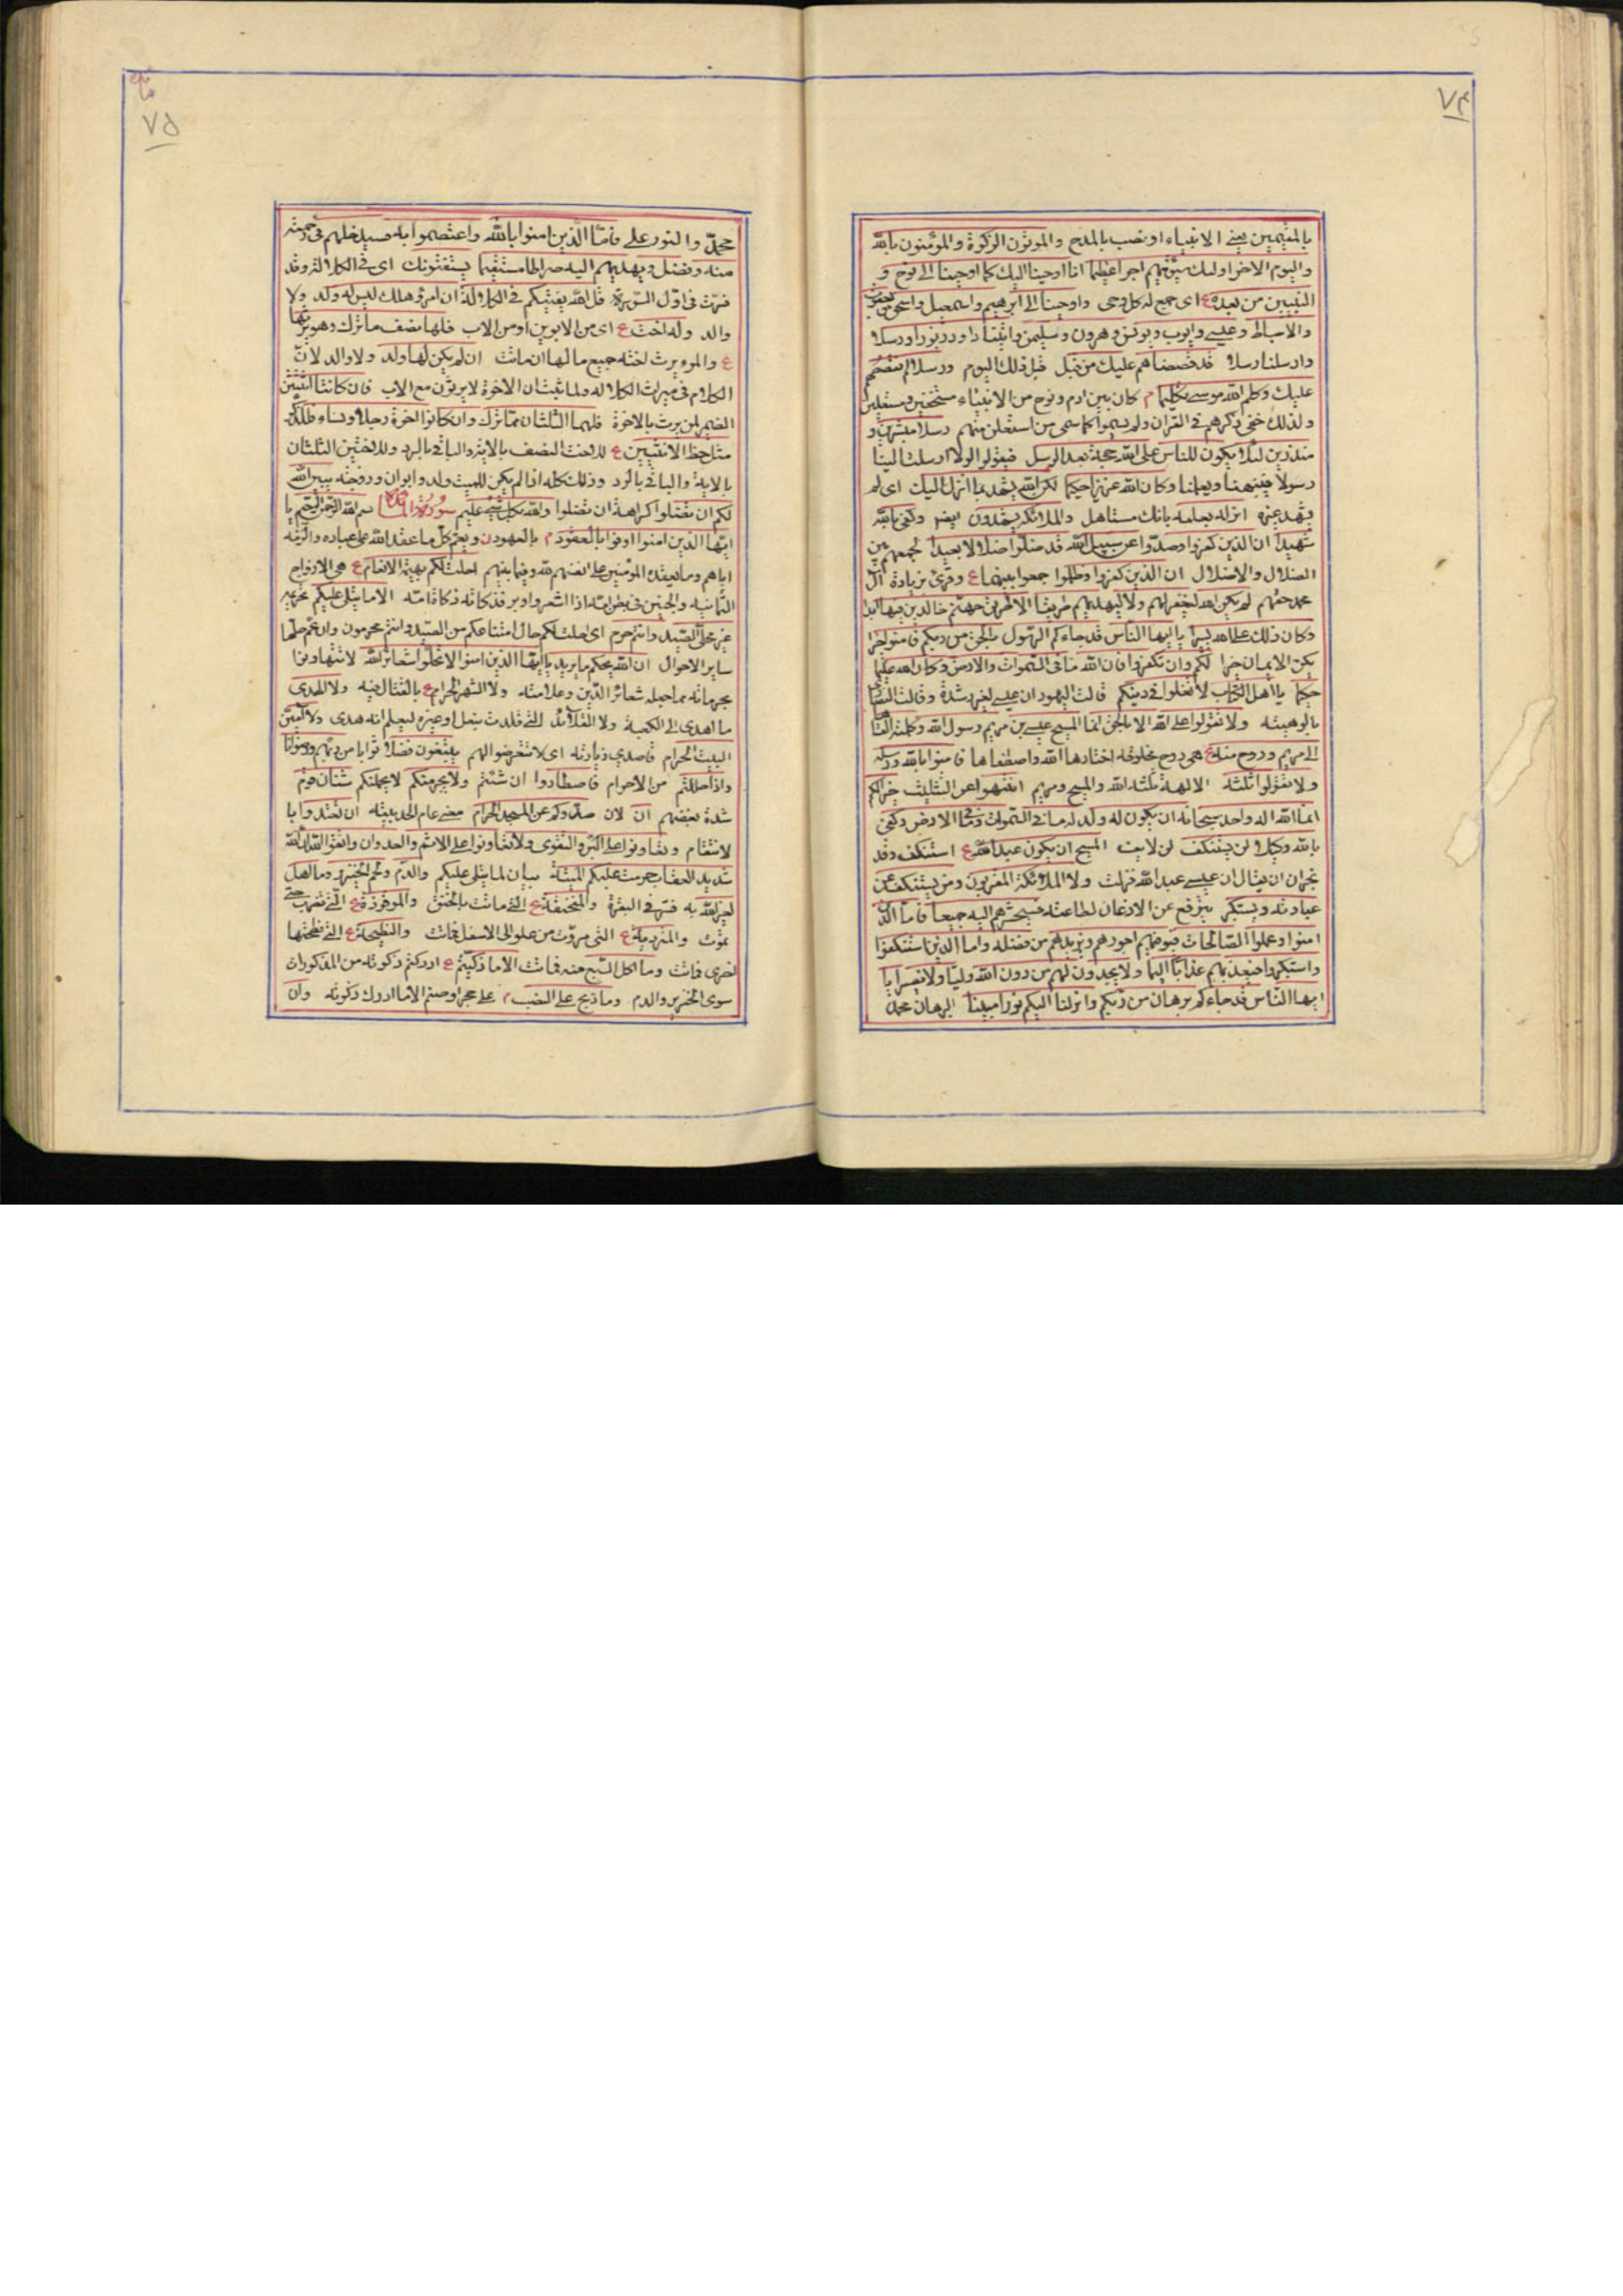 ٧٤
بالمقيمين يعني الانبياء او نصب بالمدح والمؤتون الزكوة والمؤمنون بالله
واليوم الاخر اولئك سنؤتيهم اجرا عظيما انا اوحينا اليك كما اوحينا الى نوح و
النبيين من بعده ع اي جمع له كل وحي واوحينا الى ابرهيم واسمعيل واسحق ويعقوب
والاسباط وعيسى وايوب ويونس وهرون وسليمن واتينا داود زبورا ورسلا
وارسلنا رسلا قد قصصناهم عليك من قبل قبل ذلك اليوم ورسلا لم نقصصهم
عليك وكلم الله موسى تكليما م كان بين ادم ونوح من الانبياء مستخفين ومستعلنين
ولذلك خفي ذكرهم في القران ولم يسموا كما سمي من استعلن منهم رسلا مبشرين و
منذرين لئلا يكون للناس على الله حجة بعد الرسل فيقولوا لولا ارسلت الينا
رسولا فينبهنا ويعلمنا وكان الله عزيزا حكيما لكن الله يشهد بما انزل اليك اي لم
يشهد غيره انزله بعلمه بانك مستاهل والملائكة يشهدون ايضا وكفى بالله
شهيدا ان الذين كفروا وصدوا عن سبيل الله قد ضلوا ضلالا بعيدا لجمعهم بين
الضلال والاضلال ان الذين كفروا وظلموا جمعوا بينهما ع وقرئ بزيادة آل
محمد حقهم لم يكن الله ليغفر لهم ولا ليهديهم طريقا الا طريق جهنم خالدين فيها ابدا
وكان ذلك على الله يسيرا يا ايها الناس قد جاءكم الرسول بالحق من ربكم فامنوا خيرا
يكن الايمان خيرا لكم وان تكفروا فان الله ما في السموات والارض وكان الله عليما
حكيما يا اهل الكتاب لا تغلوا في دينكم قالت اليهود ان عيسى لغير رشدة وقالت النصارى
بالوهيته ولا تقولوا على الله الا الحق انما المسيح عيسى بن مريم رسول الله وكلمته القاها
الى مريم وروح منه ع هي روح مخلوقة اختارها الله واصطفاها فامنوا بالله ورسله
ولا تقولوا ثلثة الالهة ثلثة الله والمسيح ومريم انتهوا عن التثليث خيرا لكم
انما الله اله واحد سبحانه ان يكون له ولد له ما في السموات وما في الارض وكفى
بالله وكيلا لن يستنكف لن لا يف المسيح ان يكون عبدا لله ع استنكف وفد
نجران ان يقال ان عيسى عبد الله فنزلت ولا الملائكة المقربون ومن يستنكف عن
عبادته ويستكبر يترفع عن الاذعان لطاعته فسيحشرهم اليه جميعا فاما الذين
امنوا وعملوا الصالحات فيوفيهم اجورهم ويزيدهم من فضله واما الذين استنكفوا
واستكبروا فيعذبهم عذابا اليما ولا يجدون لهم من دون الله وليا ولا نصيرا يا
ايها الناس قد جاءكم برهان من ربكم وانزلنا اليكم نورا مبينا البرهان محمد
٧٥
محمد والنور علي فاما الذين امنوا بالله واعتصموا به فسيدخلهم في رحمة
منه وفضل ويهديهم اليه صراطا مستقيما يستفتونك اي في الكلالة وقد
فسرت في اول السورة قل الله يفتيكم في الكلالة ان امرؤ هلك ليس له ولد ولا
والد وله اخت ع اي من الابوين او من الاب فلها نصف ما ترك وهو يرثها
ع والمرء يرث اخته جميع مالها ان ماتت ان لم يكن لها ولد ولا والد لان
الكلام في ميراث الكلالة ولما ثبت ان الاخوة لا يرثون مع الاب فان كانتا اثنتين
الضمير لمن يرث بالاخوة فلهما الثلثان مما ترك وان كانوا اخوة رجالا ونساء فللذكر
مثل حظ الانثيين ع للاخت النصف بالاية والباقي بالرد وللاختين الثلثان
بالاية والباقي بالرد وذلك كله اذا لم يكن للميت ولد وابوان وزوجة يبين الله
لكم ان تضلوا كراهة ان تضلوا والله بكل شيء عليم سورة المائدة بسم الله الرحمن الرحيم يا
ايها الذين امنوا اوفوا بالعقود م بالعهود ن ويعم كل ما عقد الله على عباده والزمه
اياهم وما يعقده المؤمنين على انفسهم لله وفيما بينهم احلت لكم بهيمة الانعام ع هي الازواج
الثمانية والجنين في بطن امه اذا اشعر واوبر فذكاته ذكاة امه الا ما يتلى عليكم تحريمه
غير محلي الصيد وانتم حرم اي احلت لكم حال امتناعكم من الصيد وانتم محرمون وان عم حلها
ساير الاحوال ان الله يحكم ما يريد يا ايها الذين امنوا لا تحلوا شعائر الله لا تتهاونوا
بحرماته مما جعله شعائر الدين وعلامته ولا الشهر الحرام ع بالقتال فيه ولا الهدي
ما اهدي الى الكعبة ولا القلائد التي قلدت بنعل او غيره ليعلم انه هدي ولا آمين
البيت الحرام قاصدي زيارته اي لا تتعرضوا لهم يبتغون فضلا ثوابا من ربهم ورضوانا
واذا حللتم من الاحرام فاصطادوا ان شئتم ولا يجرمنكم لا يحملنكم شنآن قوم
شدة بغضهم ان لان صدوكم عن المسجد الحرام مضى عام الحديبية ان تعتدوا يا
لانتقام وتعاونوا على البر والتقوى ولا تعاونوا على الاثم والعدوان واتقوا الله ان الله
شديد العقاب حرمت عليكم الميتة بيان لما يتلى عليكم والدم ولحم الخنزير وما اهل
لغير الله به فسر في البقرة والمنخنقة ع التي ماتت بالخنق والموقوذة ع التي تضرب حتى
تموت والمتردية ع التي تردت من علو الى الاسفل فماتت والنطيحة ع التي نطحتها
اخرى فماتت وما اكل السبع منه فماتت الا ما ذكيتم ع ادركتم ذكوته من المذكورات
سوى الخنزير والدم وما ذبح على النصب م على حجر او صنم الا ما ادرك ذكوته وان